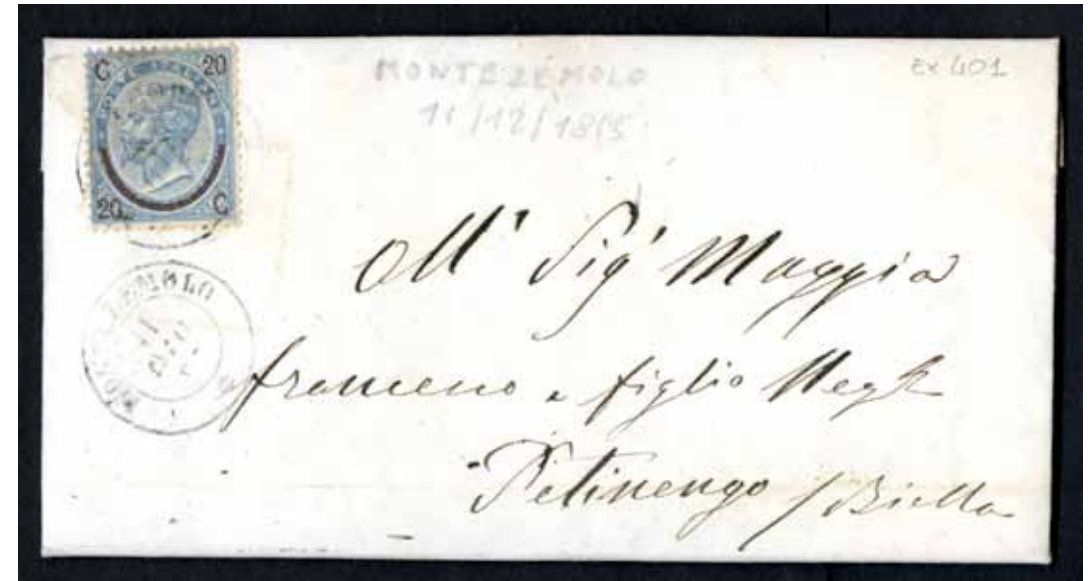 C 20
POSTE ITALIANE
20 C
MONTEZEMOLO
11/12/1865
Ex 401
MONTEZEMOLO
11
DIC
All' Sigr Maggia
Francesco e figlio Negti
Petinengo / Biella